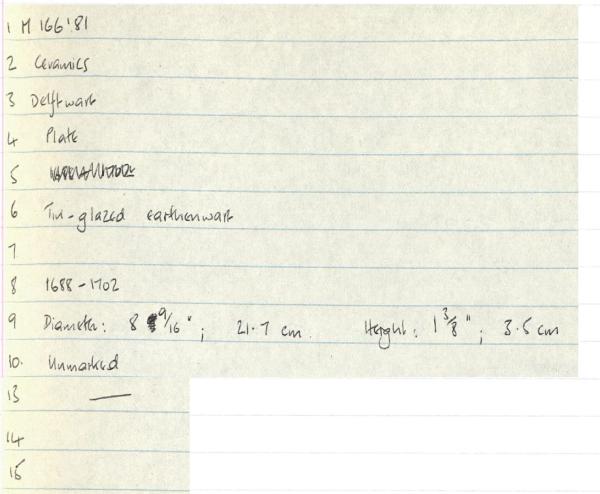 1 M 166'81
2 Ceramics
3 Delftware
4 Plate
5
6 Tin-glazed earthenware
7
8 1688-1702
9 Diameter: 8 9/16"; 21.7 cm. Height: 1 3/8"; 3.5 cm
10. Unmarked
13 —
14
15